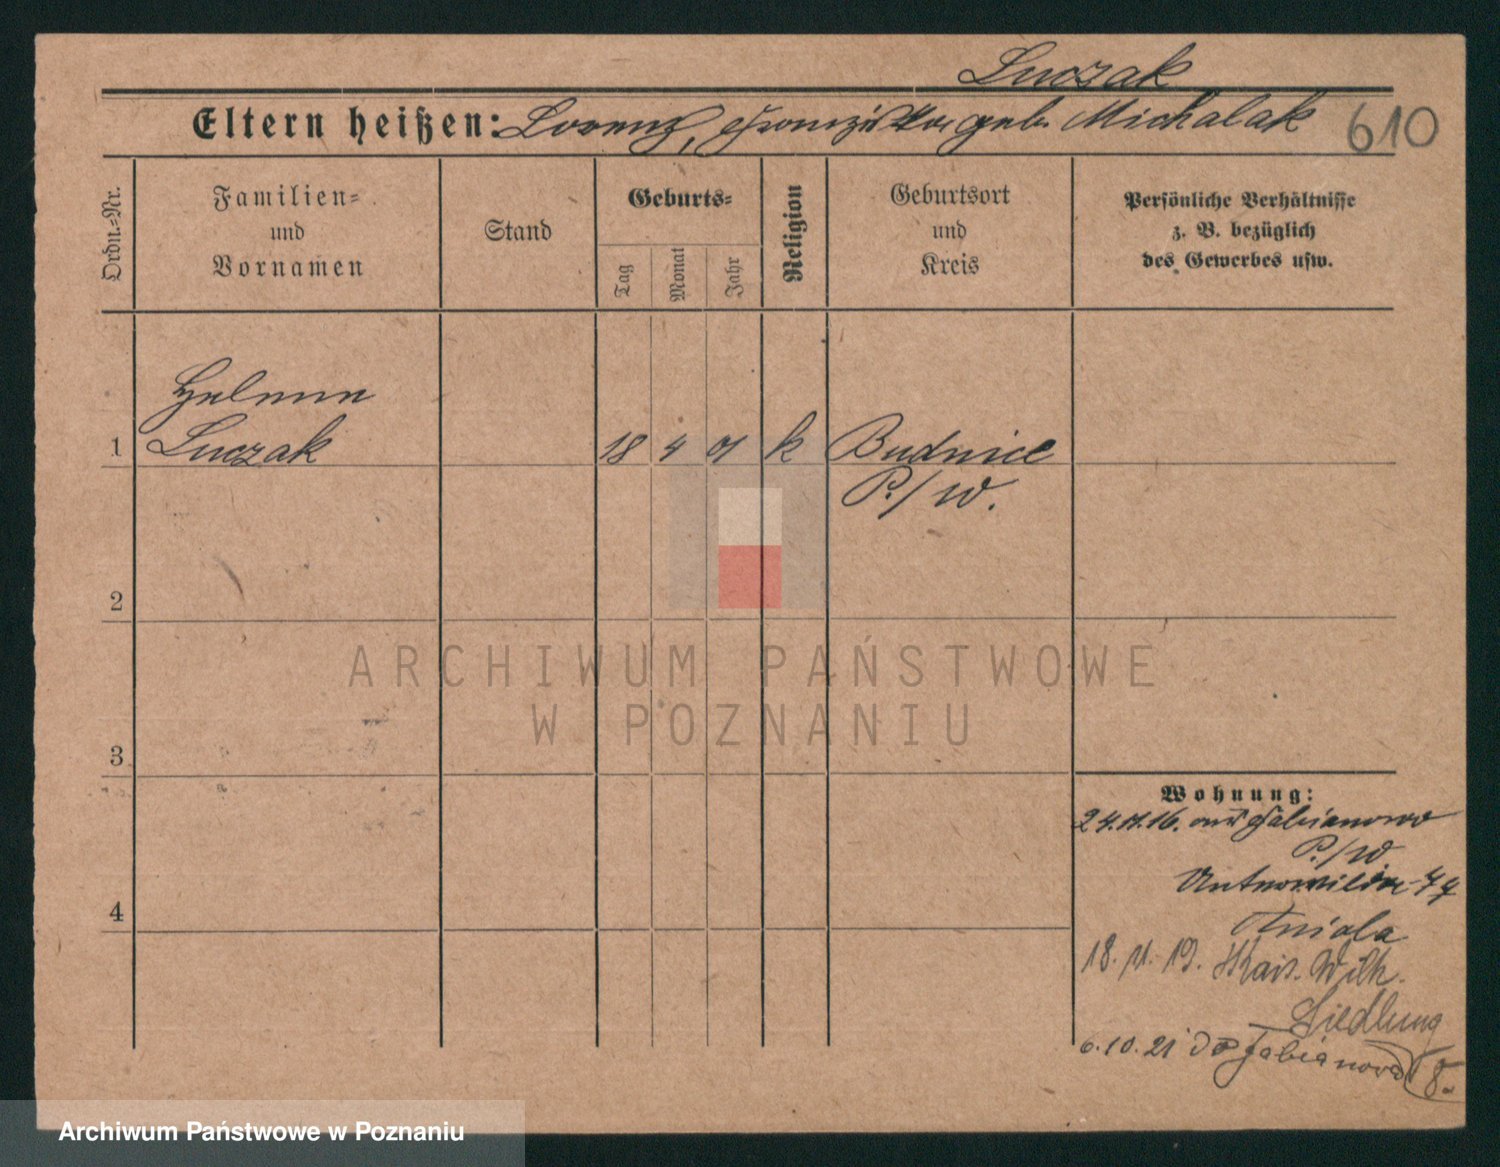 Luczak
Eltern heißen: Lorenz, Franziska geb. Michalak 610
Ordn.-Nr.
Familien-
und
Vornamen
Stand
Geburts-
Tag
Monat
Jahr
Religion
Geburtsort
und
Kreis
Persönliche Verhältnisse
z. B. bezüglich
des Gewerbes usw.
Helene
1 Luczak 18 4 01 k Budnice
P./W.
2
3
4
Wohnung:
24.11.16. aus Fabianowo
P./W
Unterwilda 47
18. 11. 19. Kais. Wilh.
Siedlung
6.10.21 Fabianowo 8.
ARCHIWUM PAŃSTWOWE
W POZNANIU
Archiwum Państwowe w Poznaniu